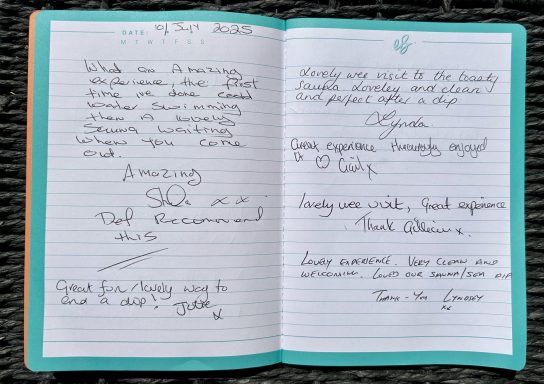 DATE: 10/July 2025
M T W T F S S
What an Amazing
experience, the first
time ive done cold
water swimming
then A lovely
Sauna waiting
when you come
out.
Amazing
x x
Def Recommend
this
Great fun/lovely way to
end a dip! Julie
x
Lovely wee visit to the toasty
sauna Loveley and clean
and perfect after a dip
Lynda
Great experience thouroughly enjoyed
it ♡ Gail x
lovely wee visit, Great experience
Thank x.
Lovely experience. Very clean and
welcoming. Loved our sauna/sea dip
Thank-you Lyndsey
xx